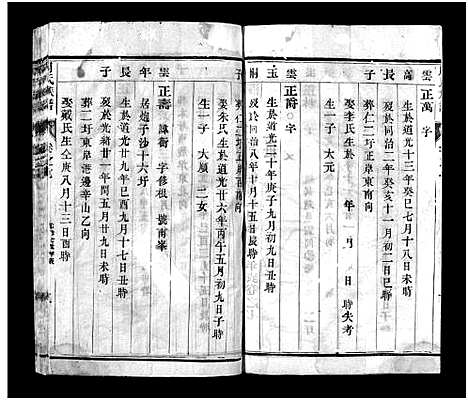 雲 正萬 字
高 生於道光十三年癸巳七月十八辰時
長 歿於同治二年癸亥十一月初二日巳時
子 葬仁二圩正岸東南向
娶李氏生於 年 月 日 時失考
生一子 大元
雲 正爵 字
玉 生於道光三十年庚戌九月初九日
歿於同治八年十月十五日辰時
子 葬仁二圩正岸西南向
娶朱氏生於道光廿六年丙午五月初九日子時
生一子 大廣 二女
雲 正壽 諱衡 字修根 號南峯
年 居炮子沙十六圩
長 生於道光廿九年己酉九月十七日丑時
子 歿於 年閏五月廿九日未時
葬二圩東岸港邊辛山乙向
娶戴氏生仝庚八月十三日酉時
氏族譜
卷之